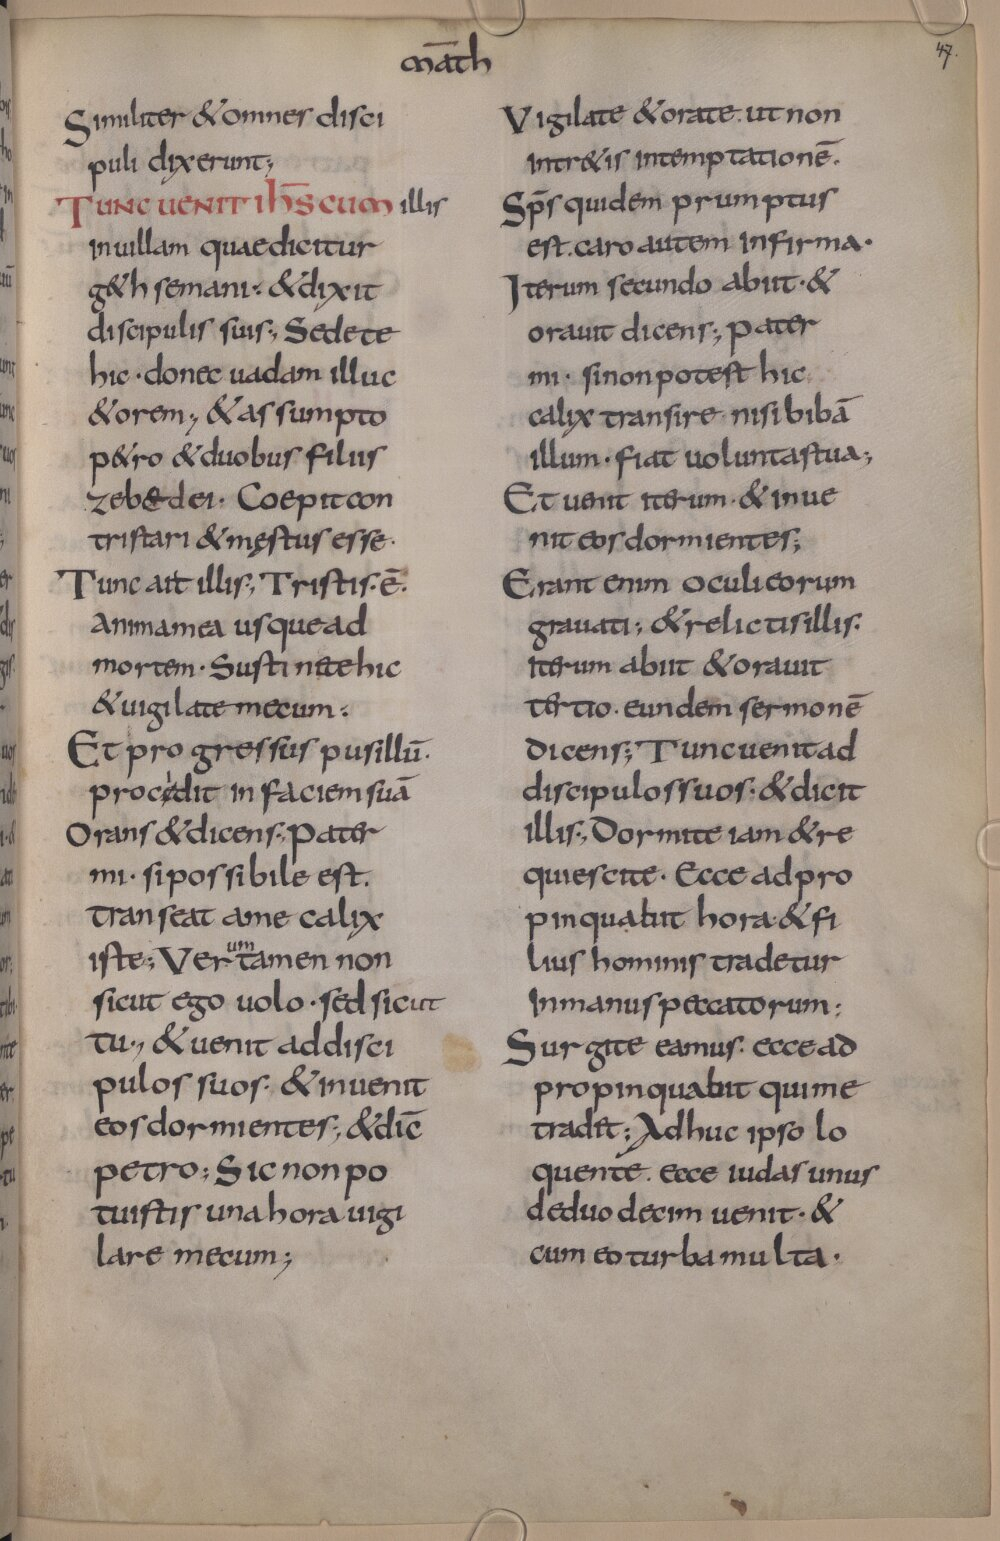 m̄ath
47.
Similiter & omnes disci
puli dixerunt;
TUNC UENIT IH̄S CUM illis
in uillam quae dicitur
g&hsemani. & dixit
discipulis suis; Sedete
hic · donec uadam illuc
& orem; & assumpto
p&ro & duobus filiis
zebedei · Coepit con
tristari & męstus esse ·
Tunc ait illis; Tristis · ē ·
anima mea usque ad
mortem · Sustinete hic
& uigilate mecum :
Et progressus pusillū ·
procidit in faciem suā
Orans & dicens; Pater
mi · si possibile est .
transeat a me calix
iste; Verumtamen non
sicut ego uolo · sed sicut
tu ; & uenit ad disci
pulos suos · & inuenit
eos dormientes; & dic̄
petro; Sic non po
tuistis una hora uigi
lare mecum;
Vigilate & orate · ut non
intr&is in temptationē .
Sp̄s quidem prumptus
est . caro autem infirma ·
Iterum secundo abiit · &
orauit dicens; pater
mi · si non potest hic
calix transire nisi bibā
illum · fiat uoluntas tua;
Et uenit iterum · & inue
nit eos dormientes;
Erant enim oculi eorum
grauati; & relictis illis ·
iterum abiit & orauit
tertio · eundem sermonē
dicens; Tunc uenit ad
discipulos suos · & dicit
illis; Dormite iam & re
quiescite · Ecce adpro
pinquabit hora · & fi
lius hominis tradetur
In manus peccatorum;
Surgite eamus · ecce ad
propinquabit qui me
tradit; Adhuc ipso lo
quente . ecce iudas unus
de duodecim uenit · &
cum eo turba multa ·